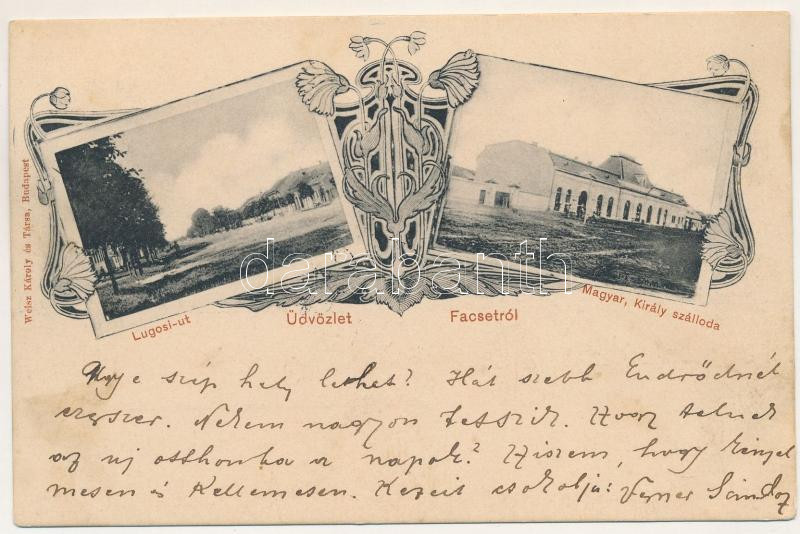 Weisz Károly és Társa, Budapest
Lugosi-ut
Üdvözlet
Facsetről
Magyar, Király szálloda
darabanth
Ugye szép hely lehet? Hát szebb Endrődnél
ezerszer. Nekem nagyon tetszik. Hogy telnek
az uj otthonba a napok? Hiszem, hogy kényel
mesen és kellemesen. Kezeit csokolja: Verner Sándor